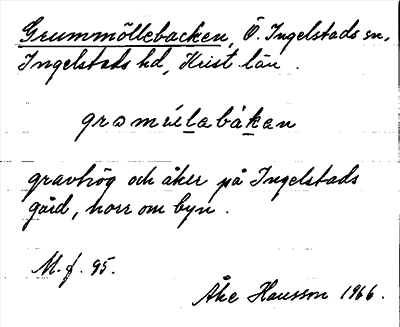 Grummöllebacken, Ö. Ingelstads sn,
Ingelstads hd, Krist. län.
grɔmúlabákan
gravhög och åker på Ingelstads
gård, norr om byn.
M. f. 95.
Åke Hansson 1966.